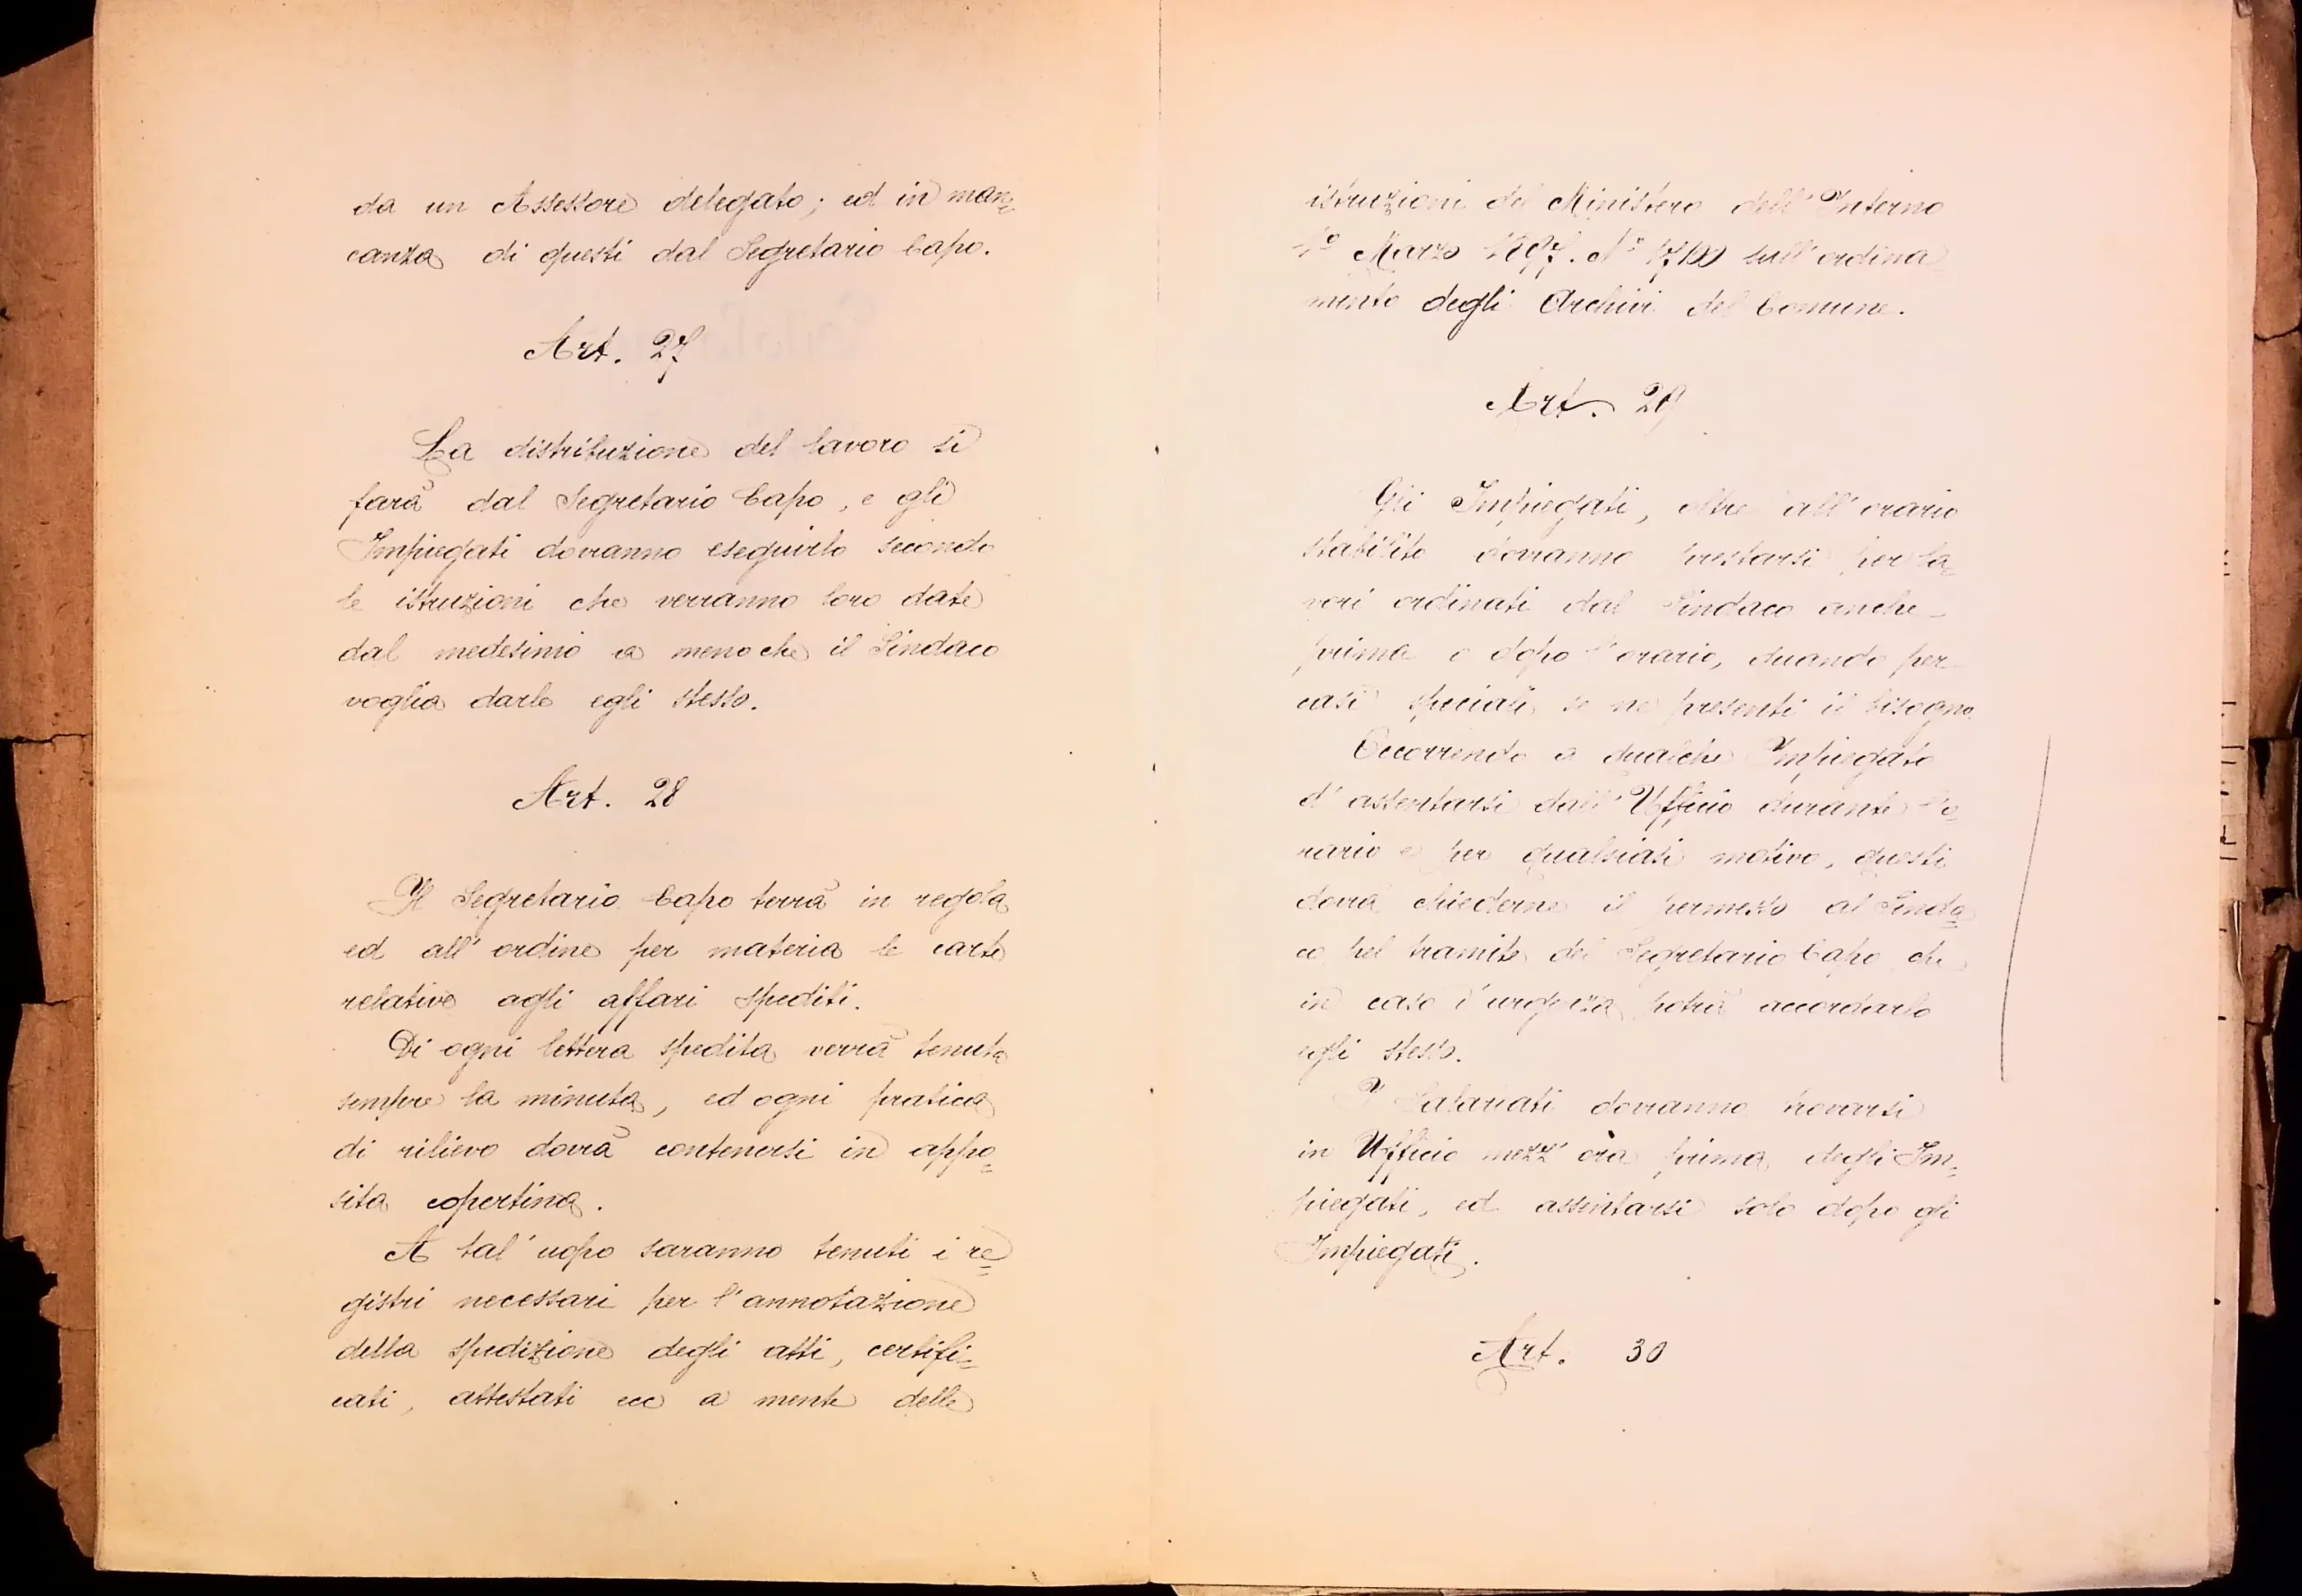 da un Assessore delegato; ed in man=
canza di questi dal Segretario Capo.
Art. 27
La distribuzione del lavoro si
farà dal Segretario Capo, e gli
Impiegati dovranno eseguirlo secondo
le istruzioni che verranno loro date
dal medesimo a meno che il Sindaco
voglia darle egli stesso.
Art. 28
Il Segretario Capo terrà in regola
ed all'ordine per materia le carte
relative agli affari spediti.
Di ogni lettera spedita verrà tenuta
sempre la minuta, ed ogni pratica
di rilievo dovrà contenersi in appo=
sita copertina.
A tal'uopo saranno tenuti i re=
gistri necessari per l'annotazione
della spedizione degli atti, certifi=
cati, attestati ecc a mente delle
istruzioni del Ministero dell'Interno
1º Marzo 1897. Nº 17100 sull'ordina
mento degli Archivi del Comune.
Art. 29
Gli Impiegati, oltre all'orario
stabilito dovranno prestarsi per la=
vori ordinati dal Sindaco anche
prima o dopo l'orario, quando per
casi speciali se ne presenti il bisogno.
Occorrendo a qualche Impiegato
d'assentarsi dall'Ufficio durante l'o=
rario e per qualsiasi motivo, questi
dovrà chiederne il permesso al Sinda=
co pel tramite del Segretario Capo che
in caso d'urgenza potrà accordarlo
egli stesso.
I Salariati dovranno trovarsi
in Ufficio mezz'ora prima degli Im=
piegati, ed assentarsi solo dopo gli
Impiegati.
Art. 30